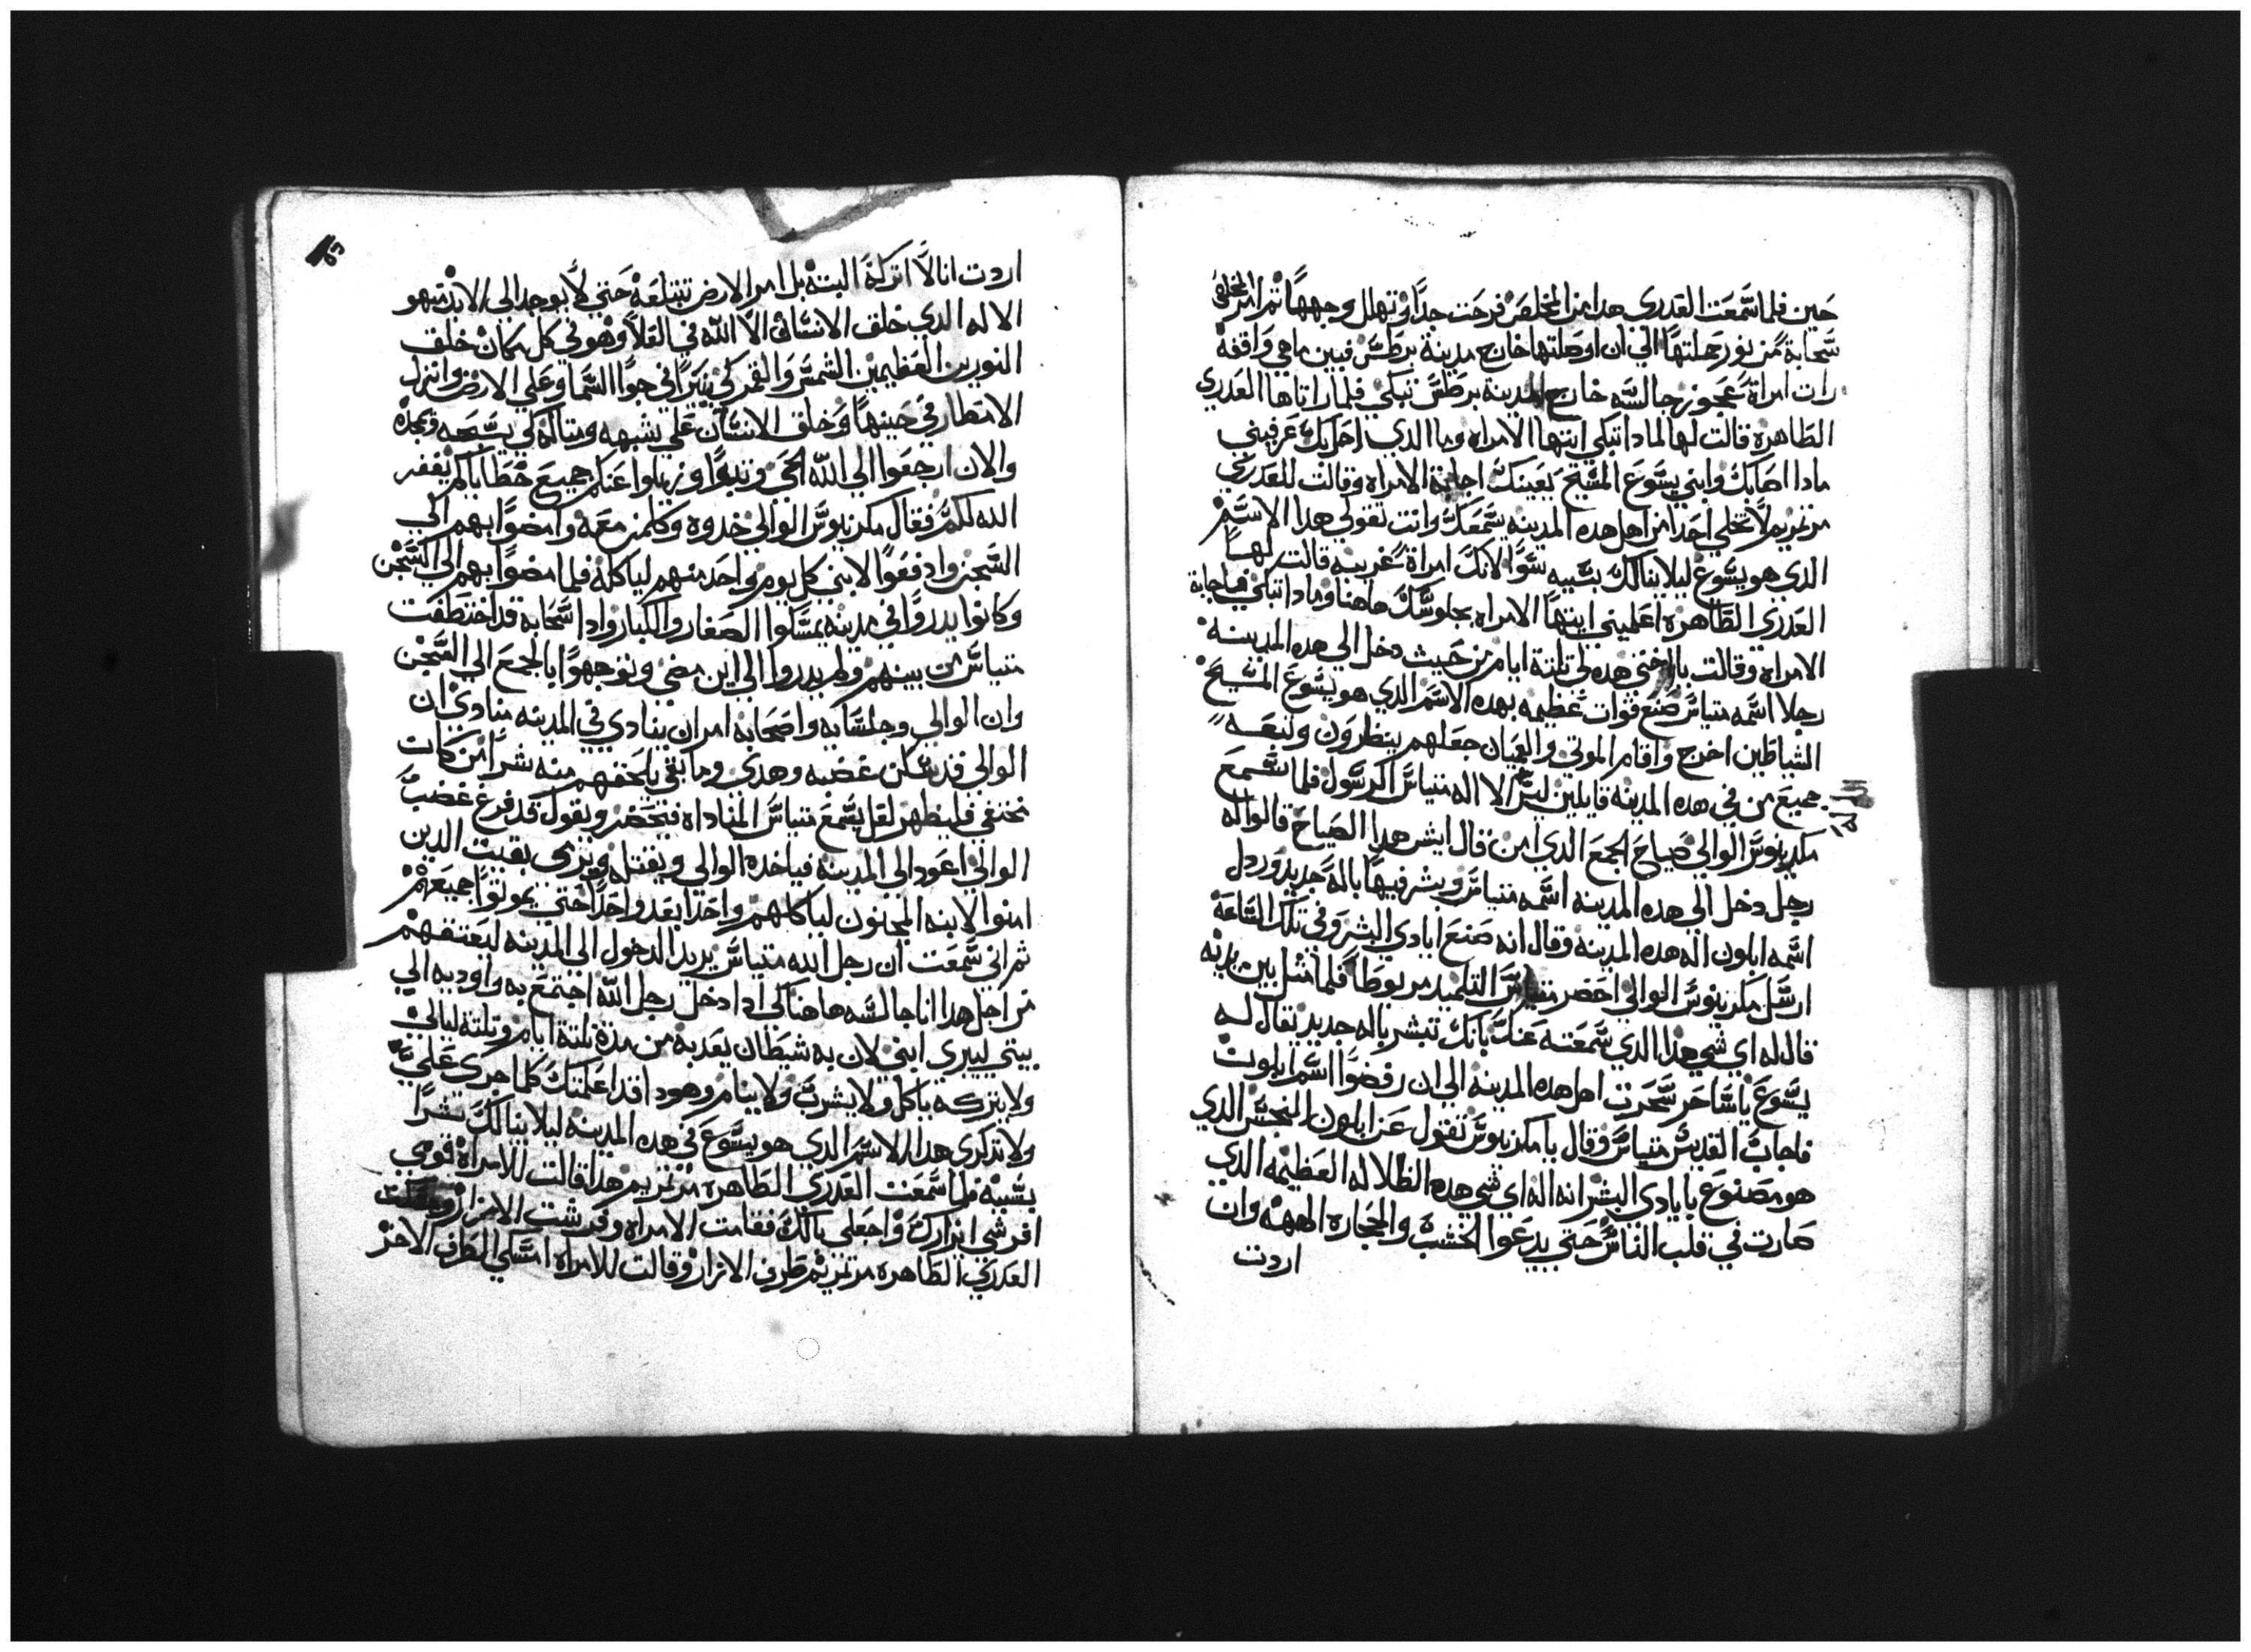 حين فلما سمعت العدري هدا من المخلص فرحت جدا وتهلل وجهها ثم امر المخلص
سحابة من نور حملتها الي ان اوصلتها خارج مدينة برطس فبين ما هي واقفة
رات امراة عجوز جالسه خارج المدينة برطس تبكي فلما راتها العدري
الطاهرة قالت لها لمادا تبكي ايتها الامراه وما الدي احل بك عرفيني
مادا اصابك وابني يسوع المسيح يعينك اجابة الامراه وقالت للعدري
مرتمريم لا تخلي احدا من اهل هده المدينه يسمعك وانت تقولي هدا الاسم
الدي هو يسوع ليلا ينالك بسببه سوا لانك امراة غريبه قالت لها
العدري الطاهره اعلميني ايتها الامراه بجلوسك هاهنا ومادا تبكي فاجابة
الامراه وقالت يا اختي هده لي تلتة ايام من حيث دخل الي هده المدينة
رجلا اسمه متياس صنع قوات عظيمه بهده الاسم الدي هو يسوع المسيح
الشياطين اخرج واقام الموتي والعميان جعلهم ينظرون وتبعه
جميع من في هده المدينه قايلين ليس الا اله متياس الرسول فلما سمع
مكرينوس الوالي صياح الجمع الدي امن قال ايش هدا الصياح قالوا له
رجل دخل الي هده المدينه اسمه متياس وبشر فيها باله جديد وردل
اسمه ابلون اله هده المدينه وقال انه صنع ايادي البشر وفي تلك الساعة
ارسل مكرينوس الوالي احضر متياس التلميد مربوطا فلما مثل بين يديه
قال له اي شي هدا الدي سمعته عنك بانك تبشر باله جديد يقال له
يسوع يا ساحر سحرت اهل هده المدينه الي ان رفضوا اسم ابلون
فاجاب القديس متياس وقال يا مكرينوس تقول عن ابلون النجس الدي
هو مصنوع بايادي البشر انه اله اي شي هده الظلاله العظيمه الدي
صارت في قلب الناس حتي يدعوا الخشب والحجاره الهه وان
اردت
اردت انا لا اتركة البتة بل امر الارض تبتلعة حتي لا يوجد الي الابد متيهو
الاله الدي خلق الانسان الا الله في العلا وهو في كل مكان خلق
النورين العظيمين الشمس والقمر كي ينيرا في جوا السما وعلي الارض وانزل
الامطار في حينها وخلق الانسان علي شبهه ومتاله كي يسبحه ويمجده
والان ارجعوا الي الله الحي وتوبوا وزيلوا عنكم جميع خطاياكم يغفر
الله لكم فقال مكرينوس الوالي خدوه وكلمن معه وامضوا بهم الي
السجن وادفعوا لابني كل يوم واحد منهم لياكله فلما مضوا بهم الي السجن
وكانوا يدروا في مدينه يمسكوا الصغار والكبار وادا سحابه قد اختطفت
متياس من بينهم ولم يدروا الي اين مضي وتوجهوا بالجمع الي السجن
وان الوالي وجلسايه واصحابه امر ان ينادي في المدينه منادي ان
الوالي قد سكن غضبه وهدي وما بقي يلحقهم منه شرا من كان
مختفي فليظهر لعل يسمع متياس المناداه فيحضر ويقول قد فرغ غضب
الوالي اعود الي المدينه فياخده الوالي ويقتله ويرمي بقيت الدين
امنوا لابنه المجنون لياكلهم واحدا بعد واحدا حتي يموتوا جميعهم
ثم اني سمعت ان رجل الله متياس يريد الدخول الي المدينه ليعتقهم
من اجل هدا انا جالسه هاهنا لكي ادا دخل رجل الله اجتمع به واوديه الي
بيتي ليبري ابني لان به شيطان يعدبه من مدة تلتة ايام وتلتة ليالي
ولا يتركه ياكل ولا يشرب ولا ينام وهودا قد اعلمتك كلما جري علي
ولا تدكري هدا الاسم الدي هو يسوع في هده المدينه ليلا ينالك شرا
بسببه فلما سمعت العدري الطاهره مرتمريم هدا قالت للامراة قومي
افرشي ازارك واجعلي بالك فقامت الامراه وفرشت الازار ومسكت
العدري الطاهره مرتمريم طرف الازار وقالت للامراه امسكي الطرف الاخر